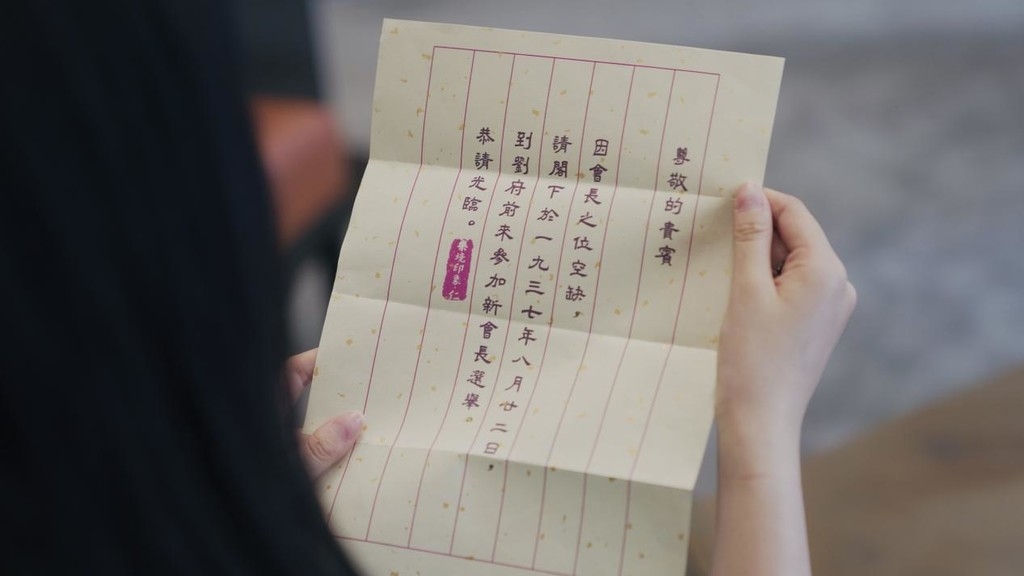 尊敬的貴賓
因會長之位空缺，
請閣下於一九三七年八月廿二日，
到劉府前來參加新會長選舉。
恭請光臨。
境印象